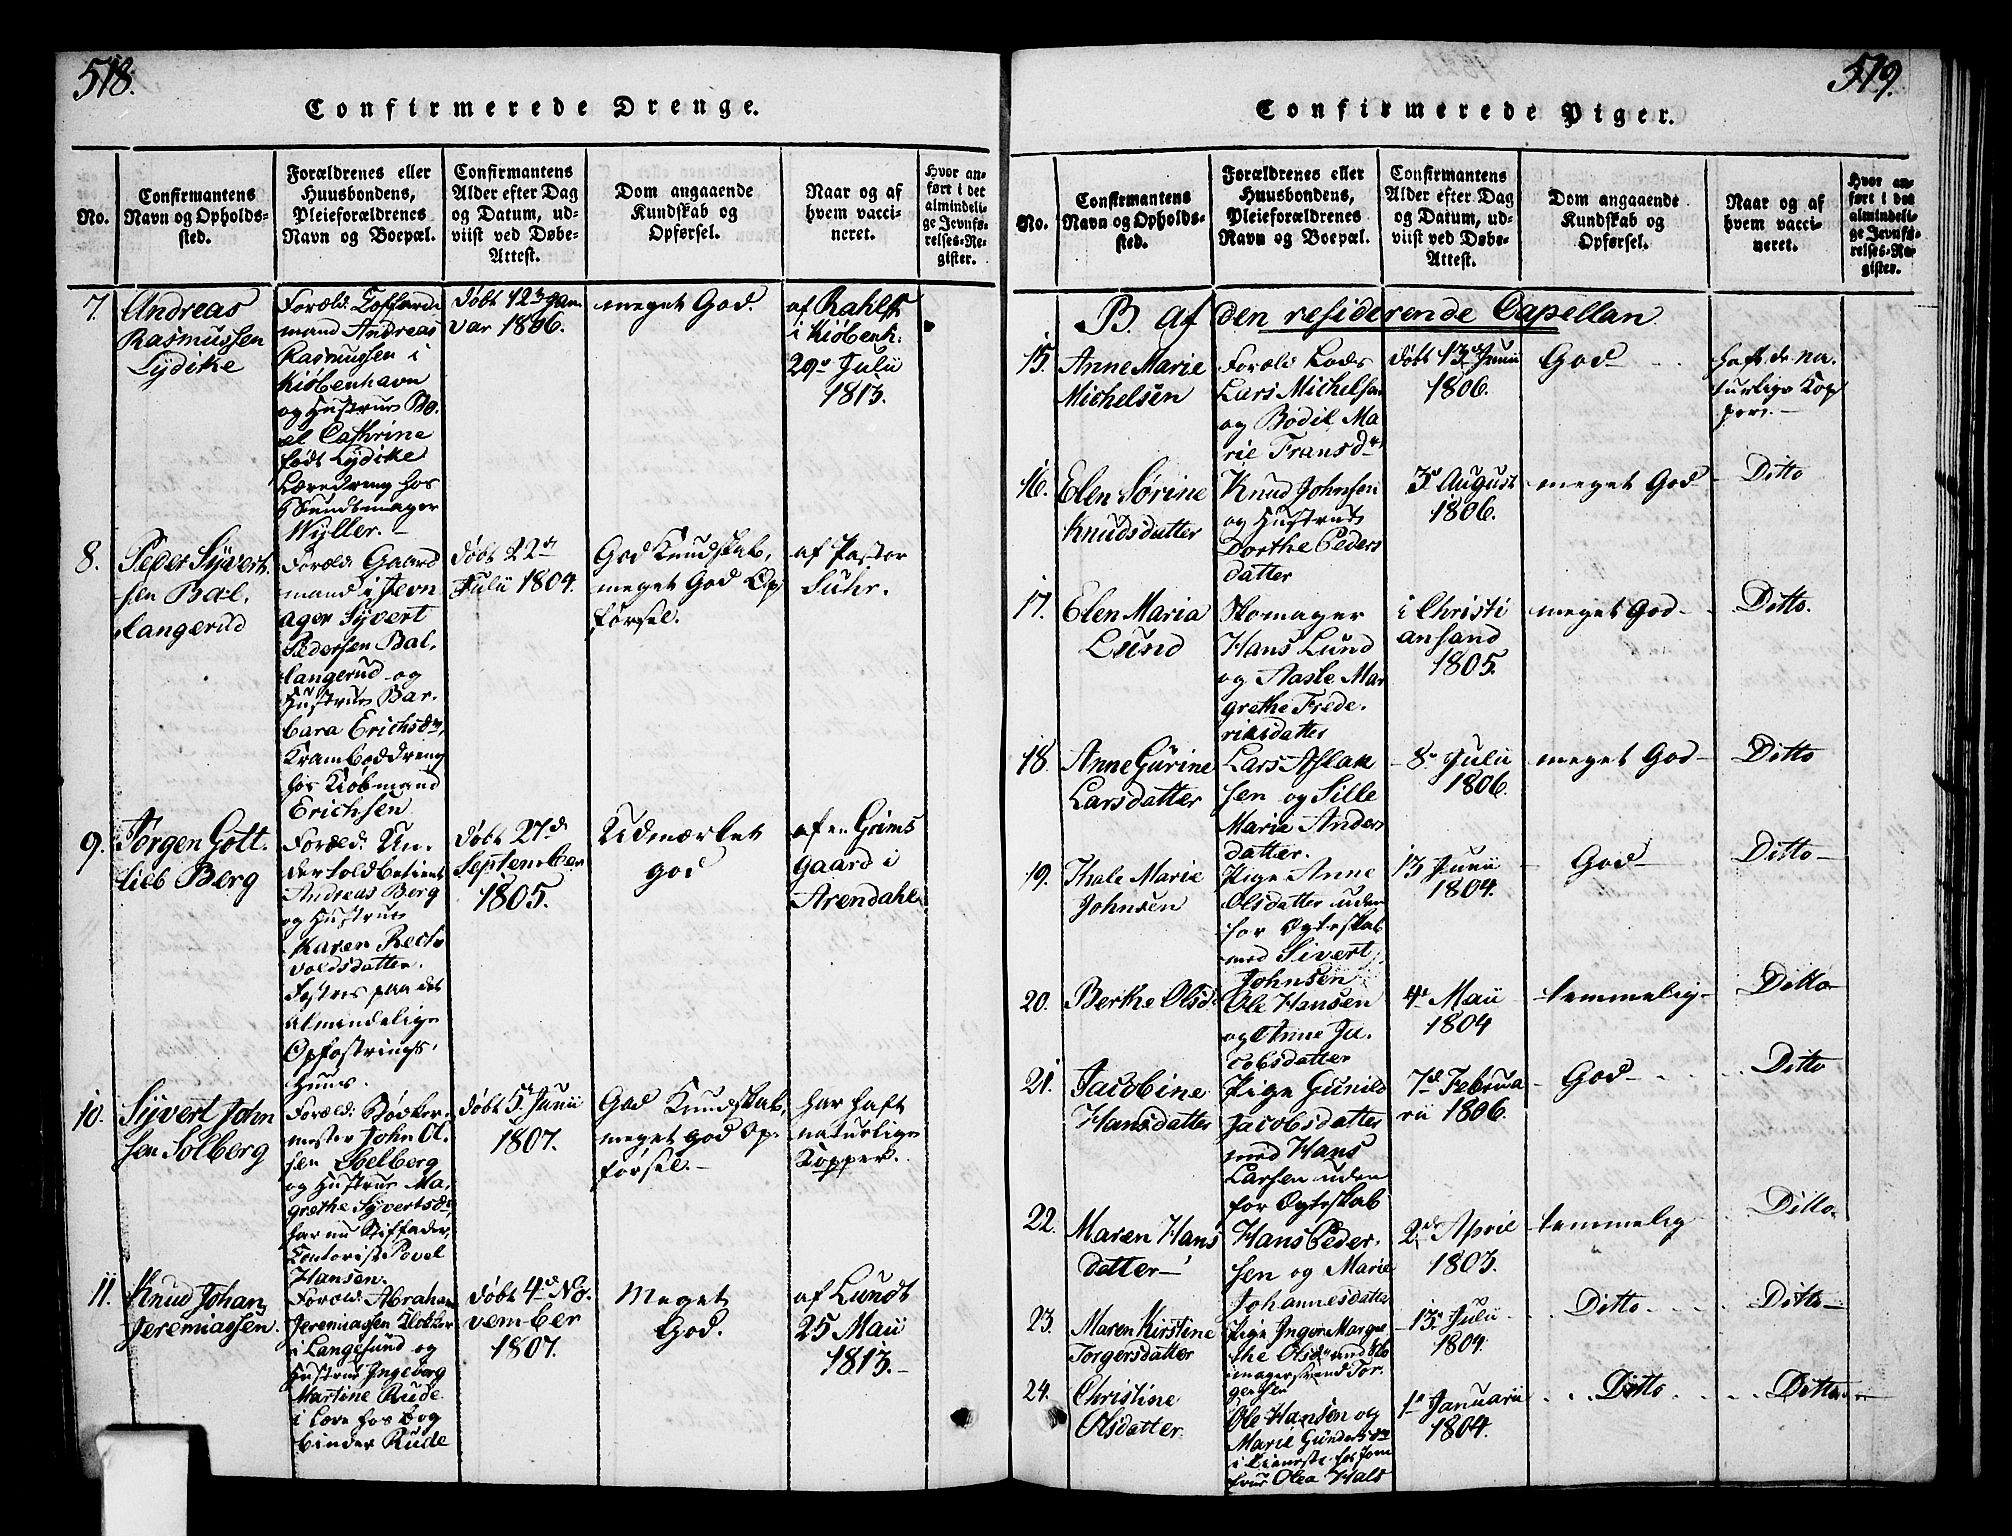 518.
Confirmerede Drenge.
No.
Confirmantens
Navn og Opholds-
sted.
Forældrenes eller
Huusbondens,
Pleieforældrenes
Navn og Boepæl.
Confirmantens
Alder efter Dag
og Datum, ud-
viist ved Døbe-
Attest.
Dom angaaende
Kundskab og
Opførsel.
Naar og af
hvem vacci-
neret.
Hvor an-
ført i det
almindeli-
ge Jevnfø-
relses-Re-
gister.
7.
Andreas
Rasmussen
Lydike
Foræld:
mand Andreas
Rasmussen i
Kiøbenhavn
og Hustrue Bo-
el Cathrine
født Lydike
Læredreng hos
Wyller. -
døbt 12 Jan
var 1806.
meget God.
af Rahlff
i Kiøbenh.
29 Julii
1813.
8.
Peder Syvert
sen Bal-
langerud
Foræld: Gaard
mand i Jevn
ager Syvert
Pedersen Bal-
langerud og
Hustrue Bar-
bara Erichsdr,
Kramboddreng
hos Kiøbmand
Erichsen
døbt 22de
Julii 1804.
God Kundskab,
meget God Op
førsel.
af Pastor
Suhr.
9.
Jørgen Gott-
lieb Berg
Foræld: Un-
dertoldbetient
Andreas Berg
og Hustrue
Karen
voldsdatter.
Fostres paa det
almindelige
Opfostrings-
Huus.
døbt 27d
September
1805.
Udmærket
god
af en Grims
gaard i
Arendahl
10.
Syvert John
sen Solberg
Foræld: Bødker-
mester John Ol-
sen Solberg
og Hustrue Ma-
grethe Syvertsdr
har nu Stiffader,
Contorist Povel
Hansen.
døbt 5 Junii
1807.
God Kundskab,
meget god Op-
førsel. -
har haft
naturlige
Kopper.
11.
Knud Johan
Jeremiassen.
Foræld: Abraham
Jeremiassen Klokker
i Langesund og
Hustrue Ingeborg
Martine Rude
i Lære hos Bog
binder Rude
døbt 4d No-
vember
1807.
Meget
God.
af Lundt
25 Maii
1813. -
519.
Confirmerede Piger.
No.
Confirmantens
Navn og Opholds-
sted.
Forældrenes eller
Huusbondens,
Pleieforældrenes
Navn og Boepæl.
Confirmantens
Alder efter Dag
og Datum, ud-
viist ved Døbe-
Attest.
Dom angaaende
Kundskab og
Opførsel.
Naar og af
hvem vacci-
neret.
Hvor an-
ført i det
almindeli-
ge Jevnfø-
relses-Re-
gister.
B. af den residerende Capellan
15.
Anne Marie
Michelsen
Foræld Lods
Lars Michelsen
og Bodil Ma
rie Fransdr
døbt 13 Junii
1806.
God
haft de na-
turlige Kop
per. -
16.
Elen Sørine
Knudsdatter
Knud Johnsen
og Hustrue
Dorthe Peders
datter
3 August
1806.
meget God
Ditto
17.
Elen Maria
Lund
Skomager
Hans Lund
og Aasle Mar
grethe Frede-
riksdatter
i Christi
ansand
1805.
meget God
Ditto.
18.
Anne Gurine
Larsdatter
Lars Aslak
sen og Sille
Marie Anders
datter.
8 Julii
1806.
meget God
Ditto
19.
Marie
Johnsen
Pige Anne
Olsdatter uden
for Ægteskab
med Sivert
Johnsen
13 Junii
1804.
God
Ditto
20.
Berthe Olsd.
Ole Hansen
og Anne Ja-
cobsdatter
4 Maii
1804
temmelig
Ditto
21.
Jacobine
Hansdatter
Pige Gunild
Jacobsdatter
med Hans
Larsen uden
for Ægteskab
7d Februa
rii 1806.
God
Ditto
22.
Maren Hans
datter
Hans Peder-
sen og Marie
Johannesdatter
2de April
1803.
temmelig
Ditto
23.
Maren Kirstine
Torgersdatter
Pige Inger Margre
the Olsdr med Sko
mager Svend Tor-
gersen
13 Julii
1804.
Ditto
Ditto
24.
Christine
Olsdatter
Ole Hansen og
Marie Gundersdr
i Tieneste hos Jom
frue Olea Hals
1 Januarii
1804.
Ditto
Ditto